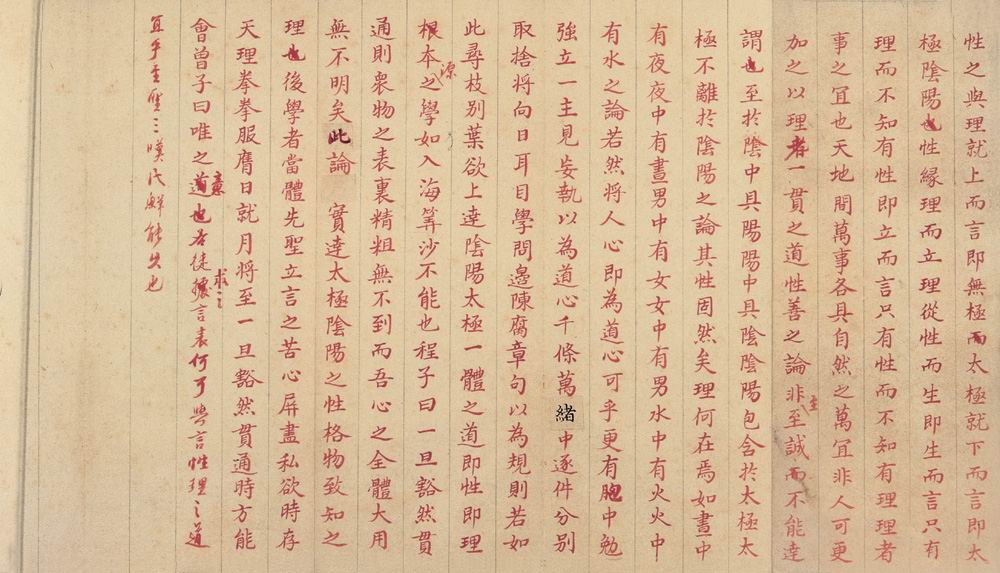 性之與理就上而言即無極而太極就下而言即太
極陰陽也性緣理而立理從性而生即生而言只有
理而不知有性即立而言只有性而不知有理理者
事之宜也天地間萬事各具自然之萬宜非人可更
加之以理者一貫之道性善之論非至誠而不能達
謂也至於陰中具陽陽中具陰陰陽包含於太極太
極不離於陰陽之論其性固然矣理何在焉如晝中
有夜夜中有晝男中有女女中有男水中有火火中
有水之論若然將人心即為道心可乎更有胸中勉
強立一主見妄執以為道心千條萬緒中逐件分別
取捨將向日耳目學問邊陳腐章句以為規則若如
此尋枝別葉欲上達陰陽太極一體之道即性即理
根本源之學如入海筭沙不能也程子曰一旦豁然貫
通則衆物之表裏精粗無不到而吾心之全體大用
無不明矣此論實達太極陰陽之性格物致知之
理也後學者當體先聖立言之苦心屏盡私欲時存
天理拳拳服膺日就月將至一旦豁然貫通時方能
會曾子曰唯之意道也若徒據言表求之何可與言性理之道
宜乎至聖之嘆民鮮能久也